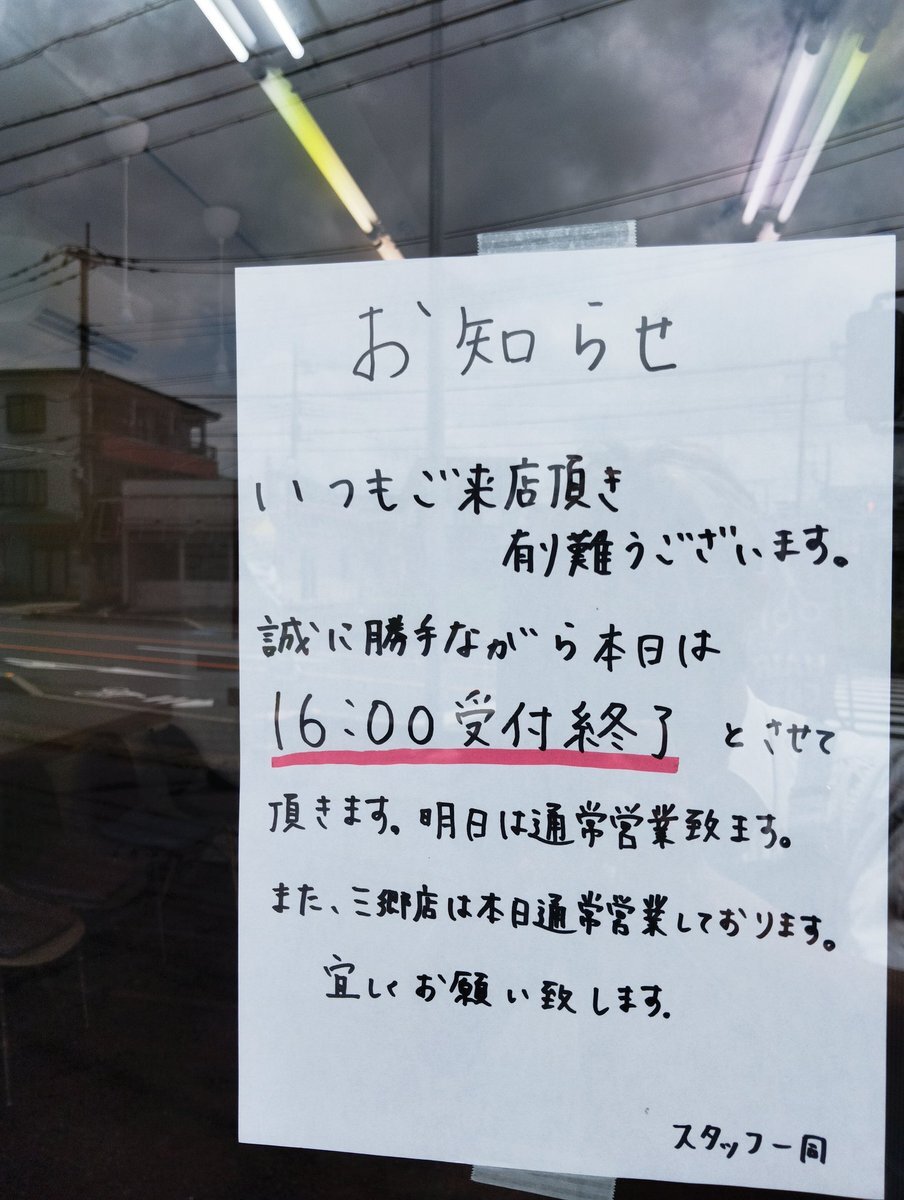 お知らせ
いつもご来店頂き
有り難うございます。
誠に勝手ながら本日は
16:00受付終了とさせて
頂きます。明日は通常営業致ます。
また、三郷店は本日通常営業しております。
宜しくお願い致します。
スタッフ一同